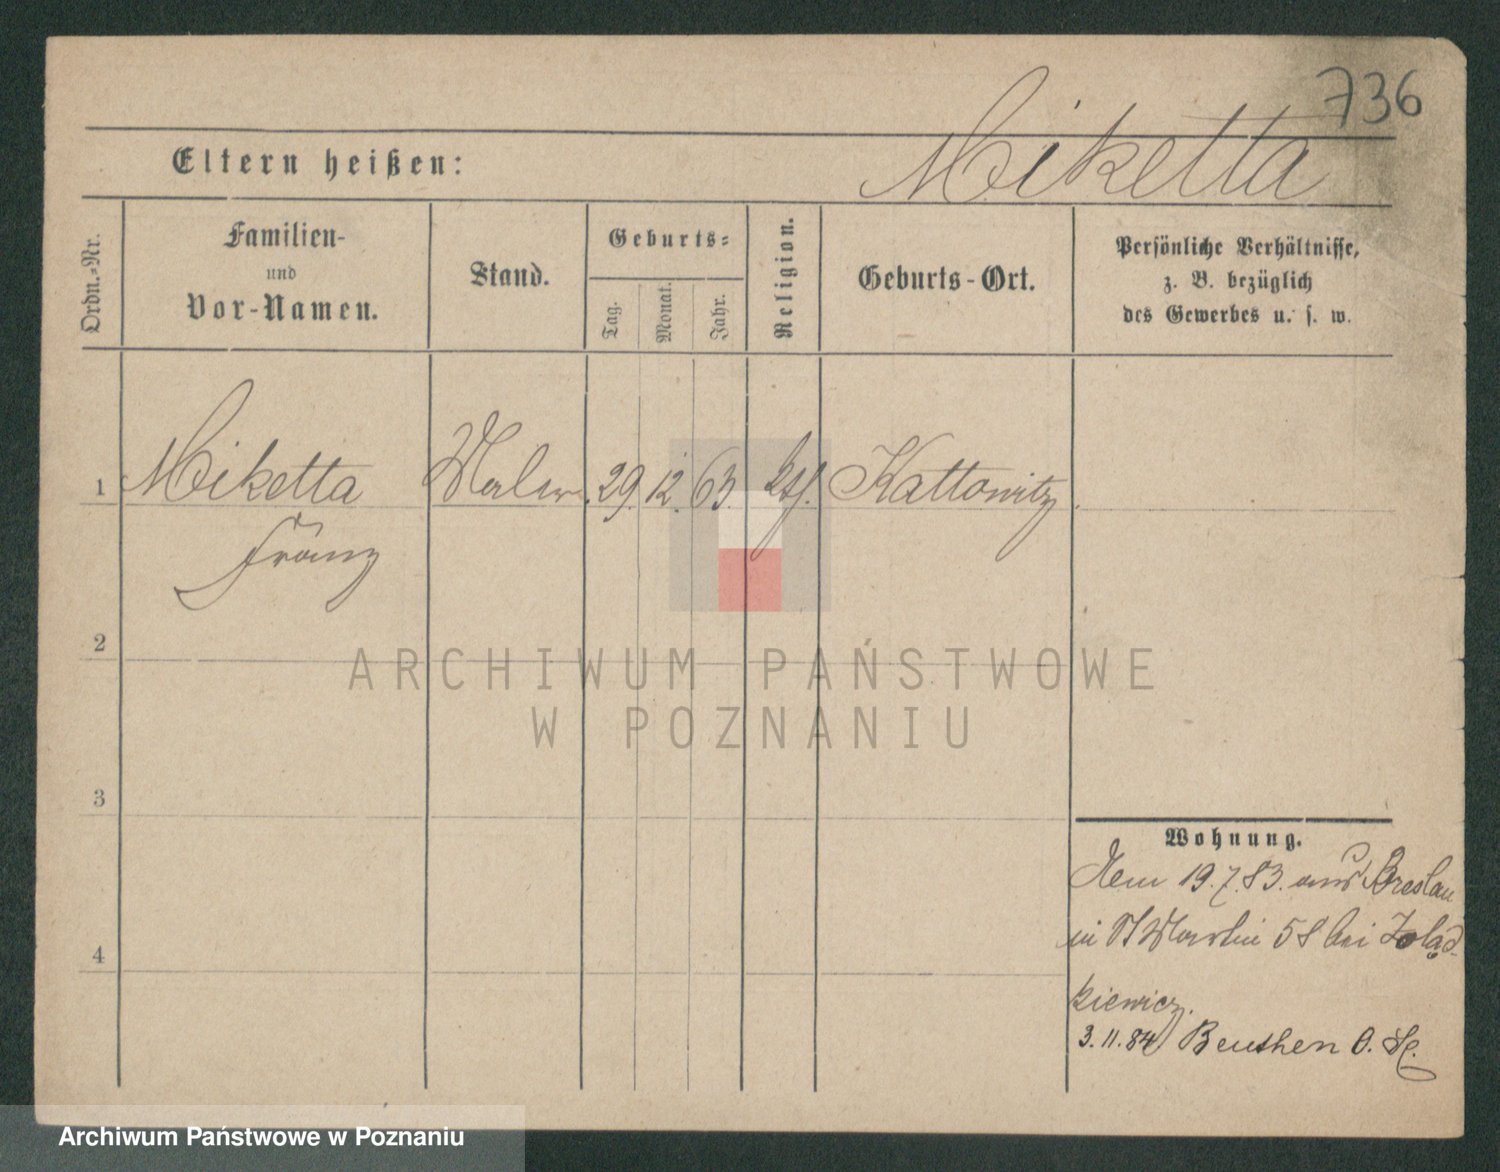 736
Miketta
Eltern heißen:
Ordn.-Nr.
Familien-
und
Vor-Namen.
Stand.
Geburts-
Tag.
Monat.
Jahr.
Religion.
Geburts-Ort.
Persönliche Verhältnisse,
z. B. bezüglich
des Gewerbes u. s. w.
1 Miketta Maler 29. 12. 63. kth. Kattowitz
Franz
2
3
4
Wohnung.
19.7.83. aus Breslau
St Martin 58 bei Żołąd-
kiewicz.
3.11.84 Beuthen O. Sc.
ARCHIWUM PAŃSTWOWE
W POZNANIU
Archiwum Państwowe w Poznaniu